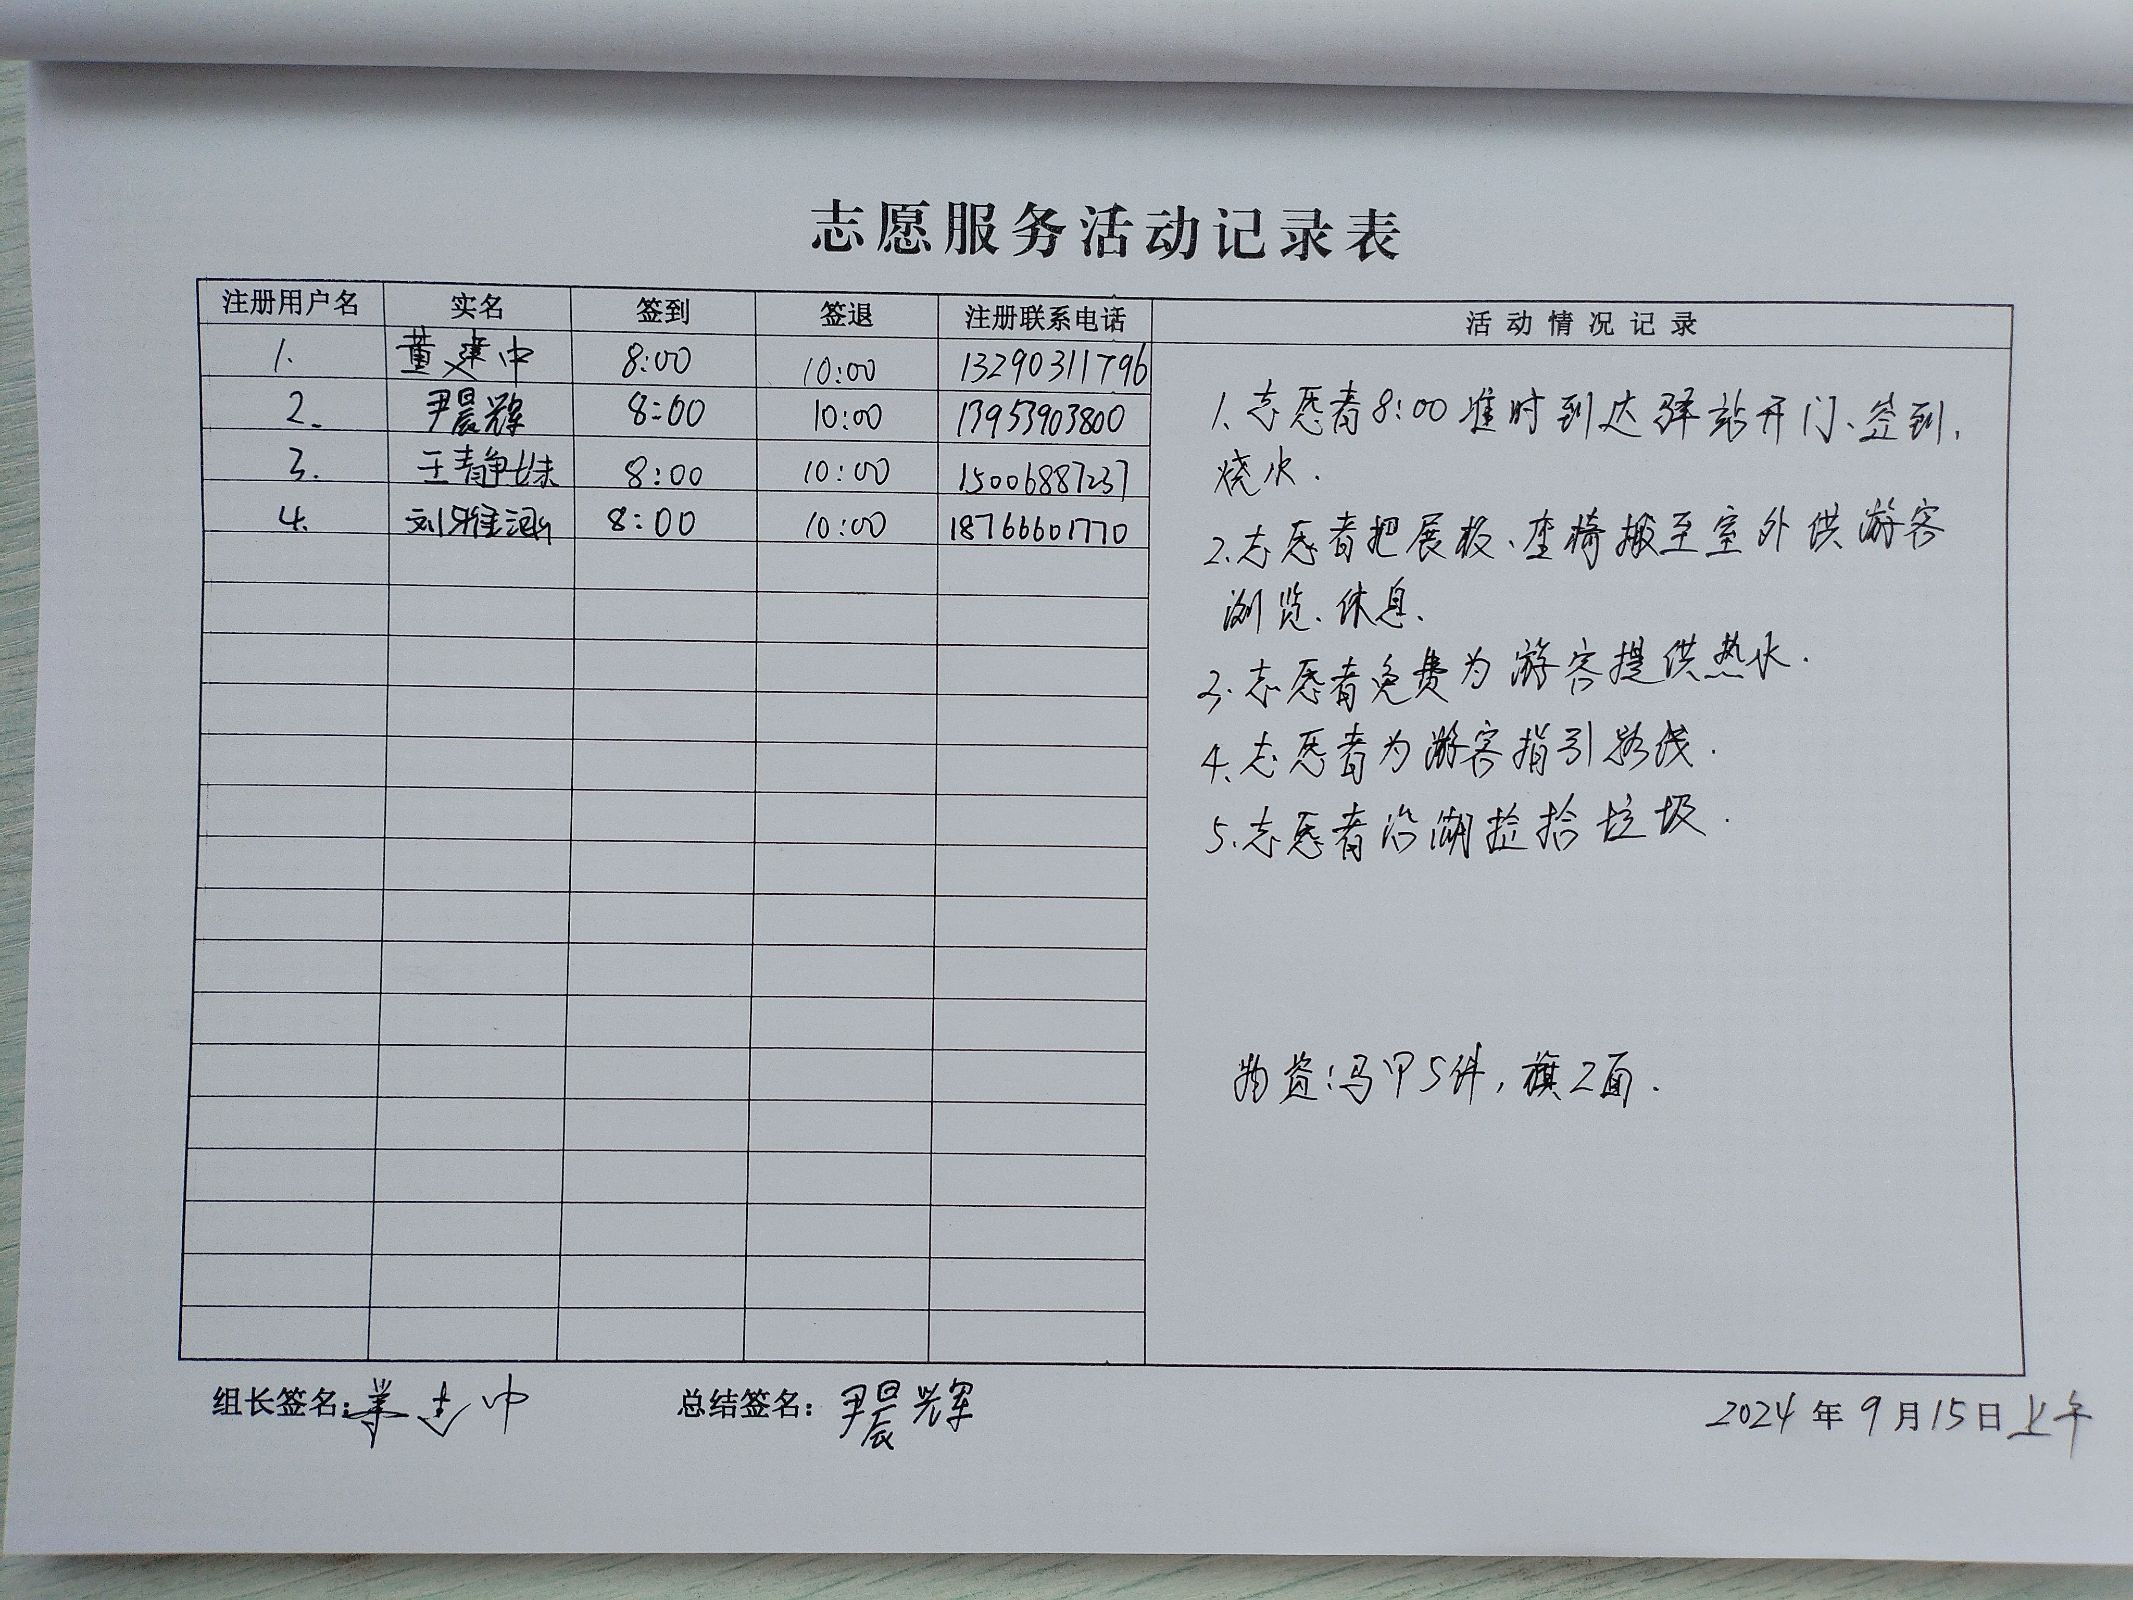 志愿服务活动记录表
注册用户名 实名 签到 签退 注册联系电话 活动情况记录
1. 董建中 8:00 10:00 13290311796
2. 尹晨辉 8:00 10:00 13953903800
3. 王静妹 8:00 10:00 15006887237
4. 刘雅涵 8:00 10:00 18766601770
1、志愿者8:00准时到达驿站开门、签到、
烧水.
2、志愿者把展板、座椅搬至室外供游客
浏览、休息.
3、志愿者免费为游客提供热水.
4、志愿者为游客指引路线.
5、志愿者沿湖捡拾垃圾.
物资:马甲5件,旗2面.
组长签名:董建中 总结签名:尹晨辉 2024年9月15日上午